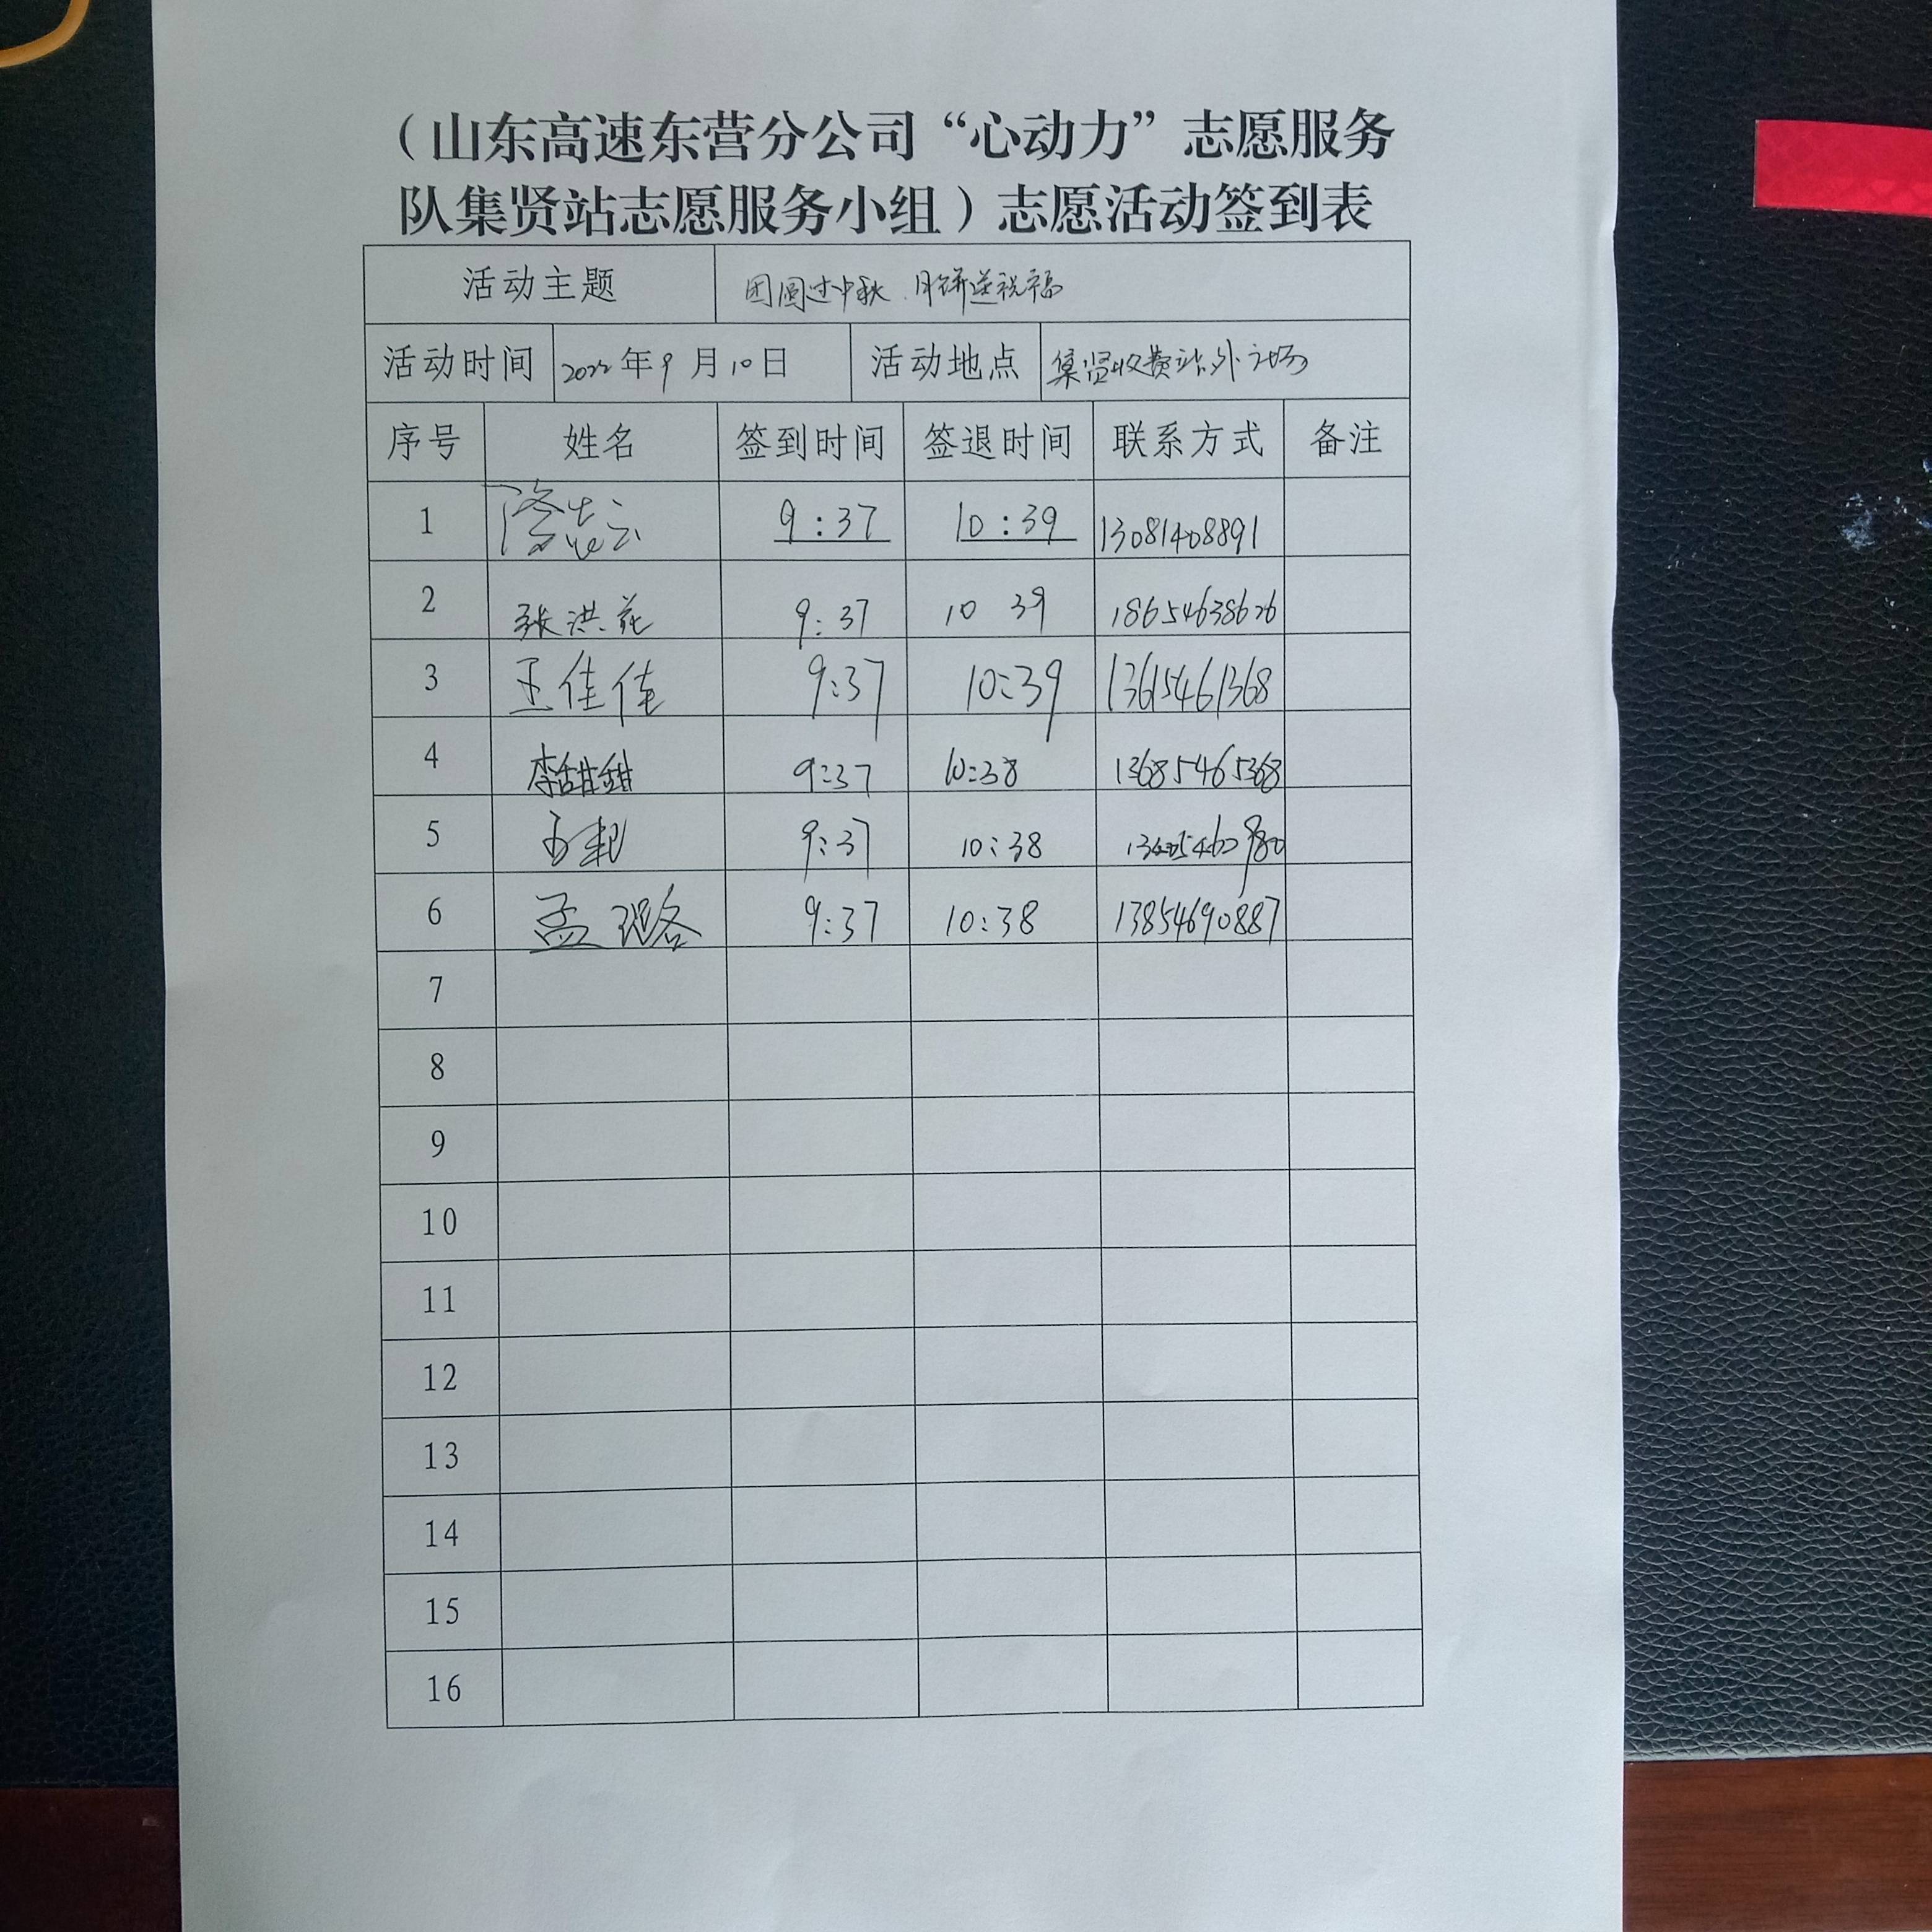 （山东高速东营分公司“心动力”志愿服务
队集贤站志愿服务小组）志愿活动签到表
活动主题 团圆过中秋、月饼送祝福
活动时间 2022年9月10日 活动地点 集贤收费站外广场
序号 姓名 签到时间 签退时间 联系方式 备注
1 9:37 10:39 13081408891
2 张洪花 9:37 10 39 18654638626
3 王佳佳 9:37 10:39 13615461368
4 李甜甜 9:37 10:38 13685465368
5 9:37 10:38
6 孟璐 9:37 10:38 13854690887
7
8
9
10
11
12
13
14
15
16